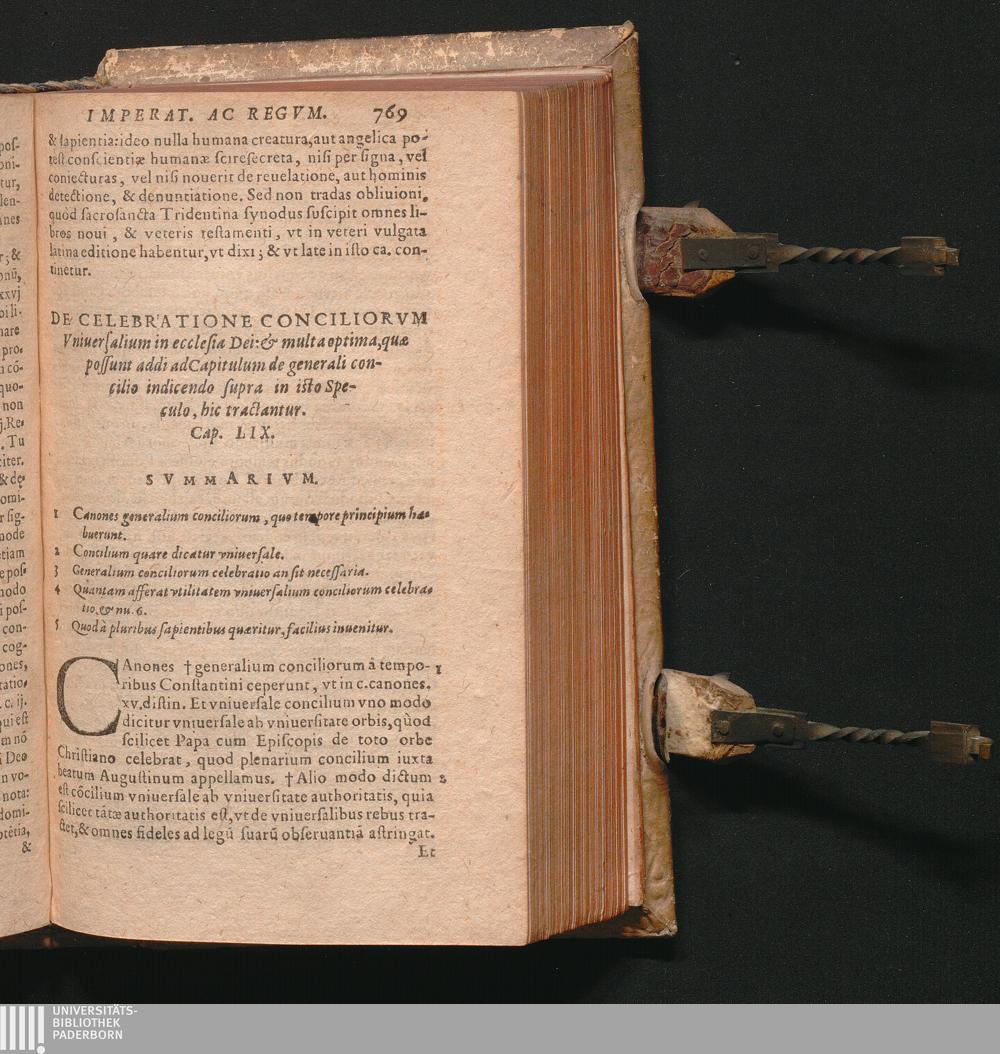 IMPERAT. AC REGVM. 769
& sapientia: ideo nulla humana creatura, aut angelica po-
test conscientiæ humanæ scire secreta, nisi per signa, vel
coniecturas, vel nisi nouerit de reuelatione, aut hominis
detectione, & denuntiatione. Sed non tradas obliuioni,
quòd sacrosancta Tridentina synodus suscipit omnes li-
bros noui, & veteris testamenti, vt in veteri vulgata
latina editione habentur, vt dixi; & vt late in isto ca. con-
tinetur.
DE CELEBRATIONE CONCILIORVM
Vniuersalium in ecclesia Dei: & multa optima, quæ
possunt addi ad Capitulum de generali con-
cilio indicendo supra in isto Spe-
culo, hic tractantur.
Cap. LIX.
SVMMARIVM.
1 Canones generalium conciliorum, quo tempore principium ha-
buerunt.
2 Concilium quare dicatur vniuersale.
3 Generalium conciliorum celebratio an sit necessaria.
4 Quantam afferat vtilitatem vniuersalium conciliorum celebra-
tio, & nu. 6.
5 Quod à pluribus sapientibus quæritur, facilius inuenitur.
CAnones † generalium conciliorum à tempo- 1
ribus Constantini ceperunt, vt in c. canones.
xv. distin. Et vniuersale concilium vno modo
dicitur vniuersale ab vniuersitate orbis, quòd
scilicet Papa cum Episcopis de toto orbe
Christiano celebrat, quod plenarium concilium iuxta
beatum Augustinum appellamus. † Alio modo dictum 2
est cōcilium vniuersale ab vniuersitate authoritatis, quia
scilicet tātæ authoritatis est, vt de vniuersalibus rebus tra-
ctet, & omnes fideles ad legū suarū obseruantiā astringat.
Et
UNIVERSITÄTS-
BIBLIOTHEK
PADERBORN